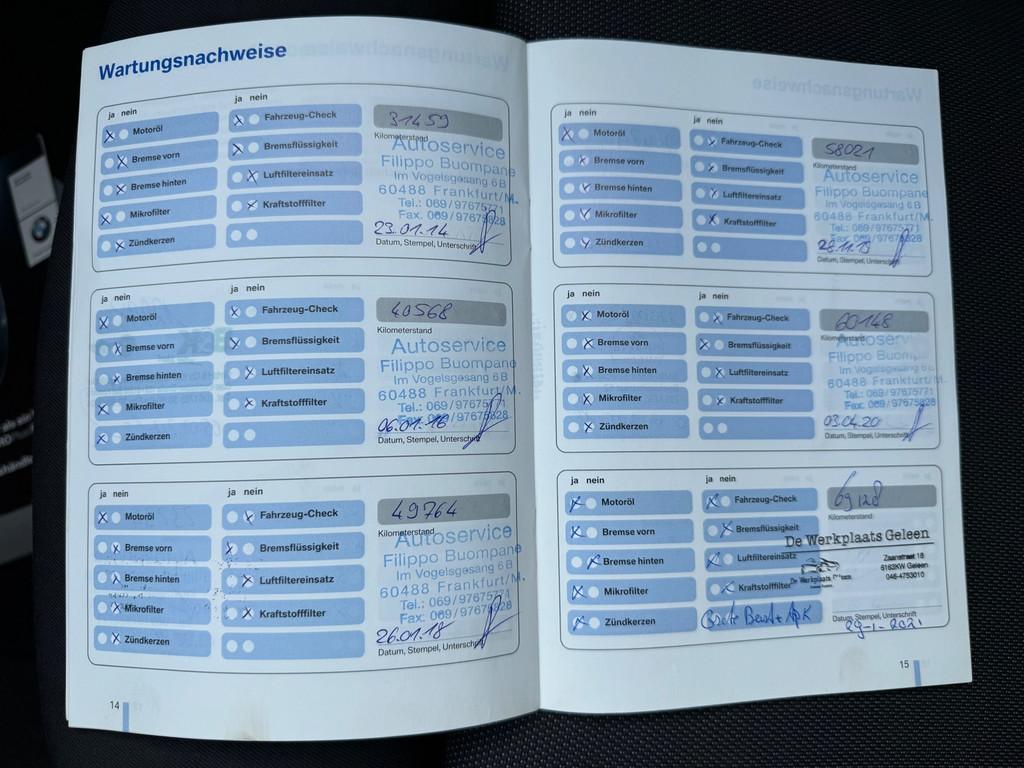 Wartungsnachweise
ja nein
ja nein
Motoröl
Bremse vorn
Bremse hinten
Mikrofilter
Zündkerzen
Fahrzeug-Check
Bremsflüssigkeit
Luftfiltereinsatz
Kraftstofffilter
31459
Kilometerstand
Autoservice
Filippo Buompane
Im Vogelsgesang 6B
60488 Frankfurt/M.
Tel.: 069/97675771
Fax: 069/97675828
23.01.14
Datum, Stempel, Unterschrift
ja nein
ja nein
Motoröl
Bremse vorn
Bremse hinten
Mikrofilter
Zündkerzen
Fahrzeug-Check
Bremsflüssigkeit
Luftfiltereinsatz
Kraftstofffilter
40568
Kilometerstand
Autoservice
Filippo Buompane
Im Vogelsgesang 6B
60488 Frankfurt/M.
Tel.: 069/97675771
Fax: 069/97675828
06.01.16
Datum, Stempel, Unterschrift
ja nein
ja nein
Motoröl
Bremse vorn
Bremse hinten
Mikrofilter
Zündkerzen
Fahrzeug-Check
Bremsflüssigkeit
Luftfiltereinsatz
Kraftstofffilter
49764
Kilometerstand
Autoservice
Filippo Buompane
Im Vogelsgesang 6B
60488 Frankfurt/M.
Tel.: 069/97675771
Fax: 069/97675828
26.01.18
Datum, Stempel, Unterschrift
14
ja nein
ja nein
Motoröl
Bremse vorn
Bremse hinten
Mikrofilter
Zündkerzen
Fahrzeug-Check
Bremsflüssigkeit
Luftfiltereinsatz
Kraftstofffilter
58021
Kilometerstand
Autoservice
Filippo Buompane
Im Vogelsgesang 6B
60488 Frankfurt/M.
Tel.: 069/97675771
Fax: 069/97675828
Datum, Stempel, Unterschrift
ja nein
ja nein
Motoröl
Bremse vorn
Bremse hinten
Mikrofilter
Zündkerzen
Fahrzeug-Check
Bremsflüssigkeit
Luftfiltereinsatz
Kraftstofffilter
60148
Kilometerstand
Autoservice
Filippo Buompane
Im Vogelsgesang 6B
60488 Frankfurt/M.
Tel.: 069/97675771
Fax: 069/97675828
03.04.20
Datum, Stempel, Unterschrift
ja nein
ja nein
Motoröl
Bremse vorn
Bremse hinten
Mikrofilter
Zündkerzen
Fahrzeug-Check
Bremsflüssigkeit
Luftfiltereinsatz
Kraftstofffilter
Grote Beurt + APK
69128
Kilometerstand
De Werkplaats Geleen
Zaanstraat 18
6163KW Geleen
046-4753010
De Werkplaats Geleen
Datum, Stempel, Unterschrift
29-1-2021
15